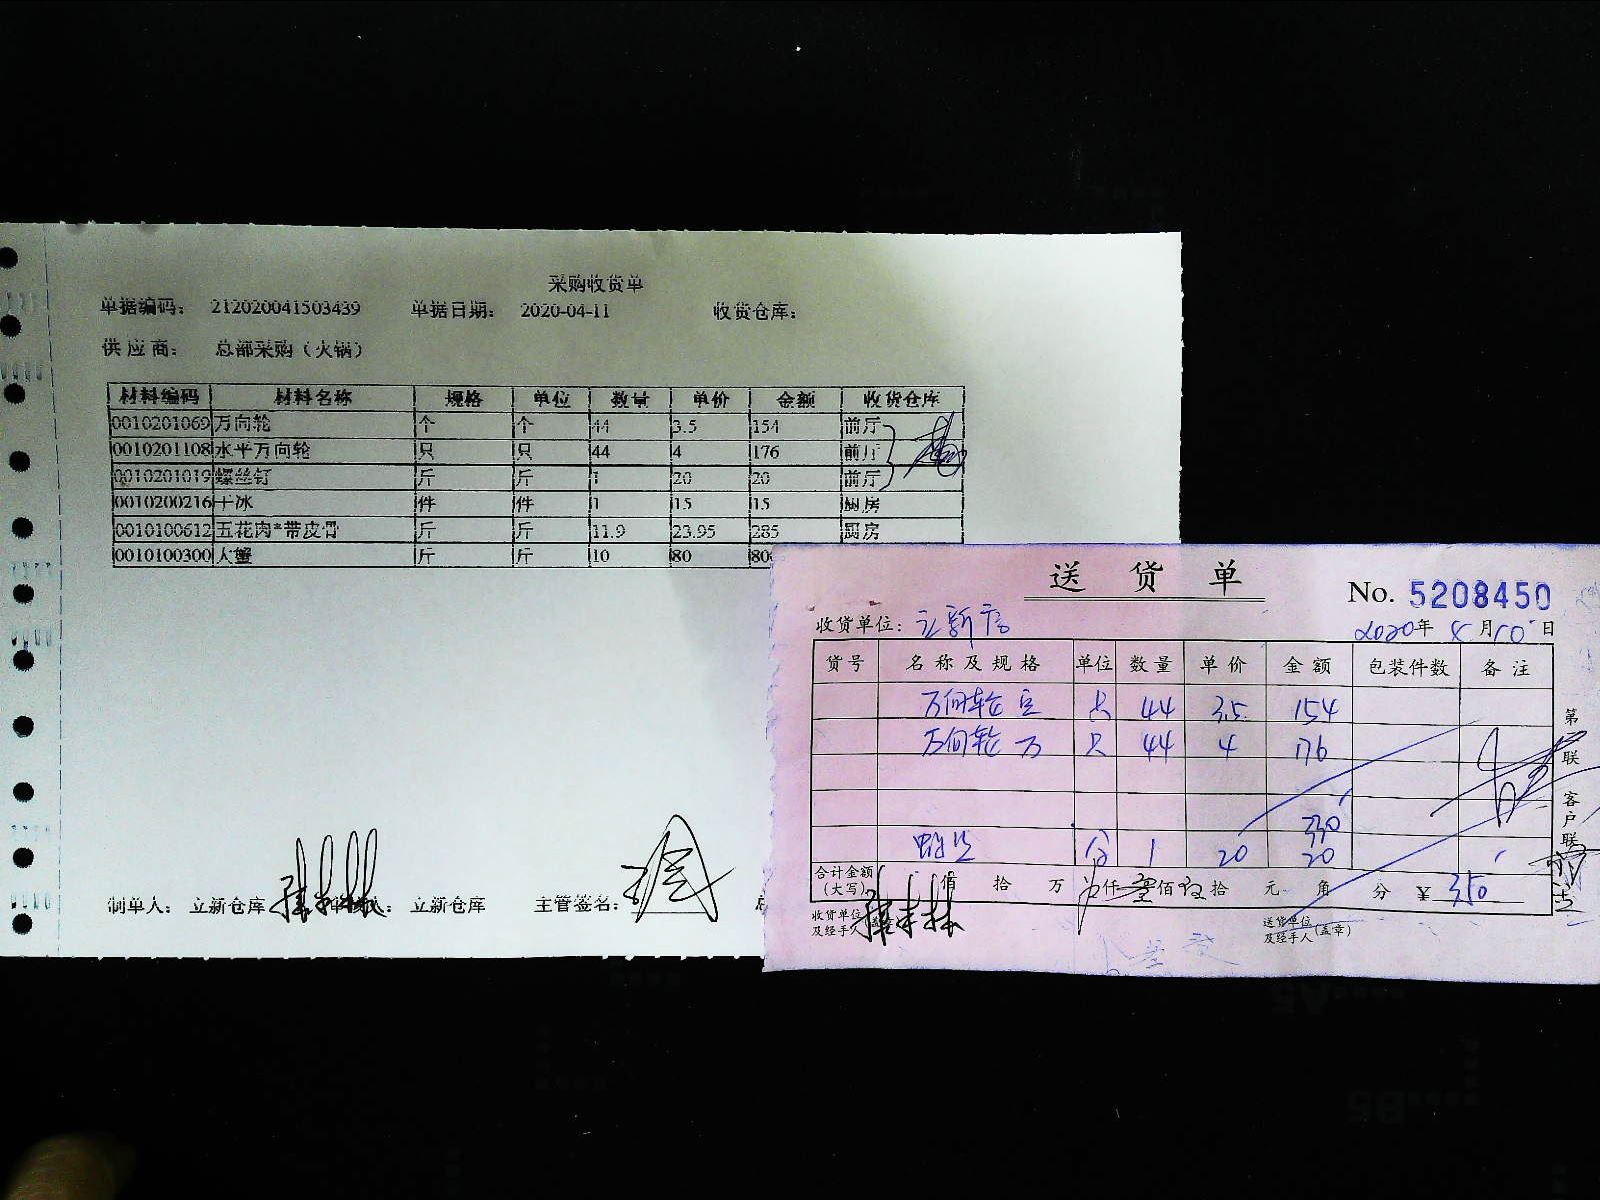 采购收货单
单据编码： 212020041503439 单据日期： 2020-04-11 收货仓库：
供应商： 总部采购（火锅）
材料编码 材料名称 规格 单位 数量 单价 金额 收货仓库
0010201069 万向轮 个 个 44 3.5 154 前厅
0010201108 水平万向轮 只 只 44 4 176 前厅
0010201019 螺丝钉 斤 斤 1 20 20 前厅
0010200216 干冰 件 件 1 15 15 厨房
0010100612 五花肉*带皮骨 斤 斤 11.9 23.95 285 厨房
0010100300 大蟹 斤 斤 10 80 80
制单人： 立新仓库 立新仓库 主管签名：
送货单
No. 5208450
收货单位：立新店 2020年4月10日
货号 名称及规格 单位 数量 单价 金额 包装件数 备注
万向轮 只 44 3.5 154
万向轮 万 只 44 4 176
330
1 20 20
合计金额（大写） 佰 拾 万 仟 佰 拾 元 角 分 ￥ 350
收货单位及经手人（盖章）
送货单位及经手人（盖章）
第
联
客户联